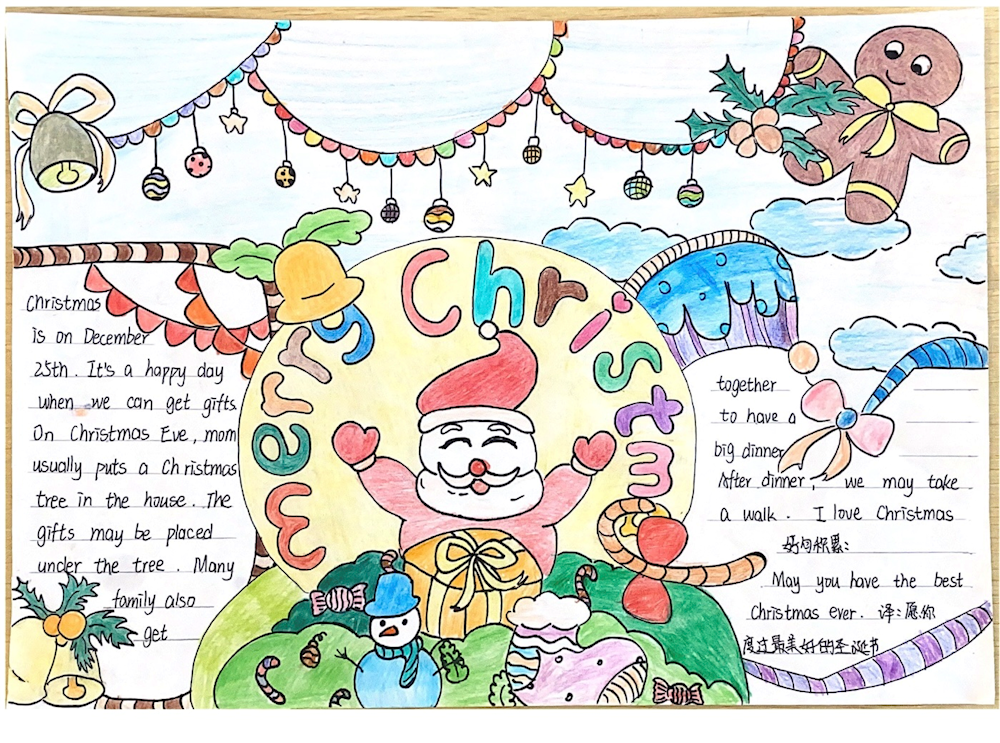 merry Christm
Christmas
is on December
25th. It's a happy day
when we can get gifts.
On Christmas Eve, mom
usually puts a Christmas
tree in the house. The
gifts may be placed
under the tree. Many
family also
get
together
to have a
big dinner
After dinner, we may take
a walk. I love Christmas
好句积累:
May you have the best
Christmas ever. 译:愿你
度过最美好的圣诞节